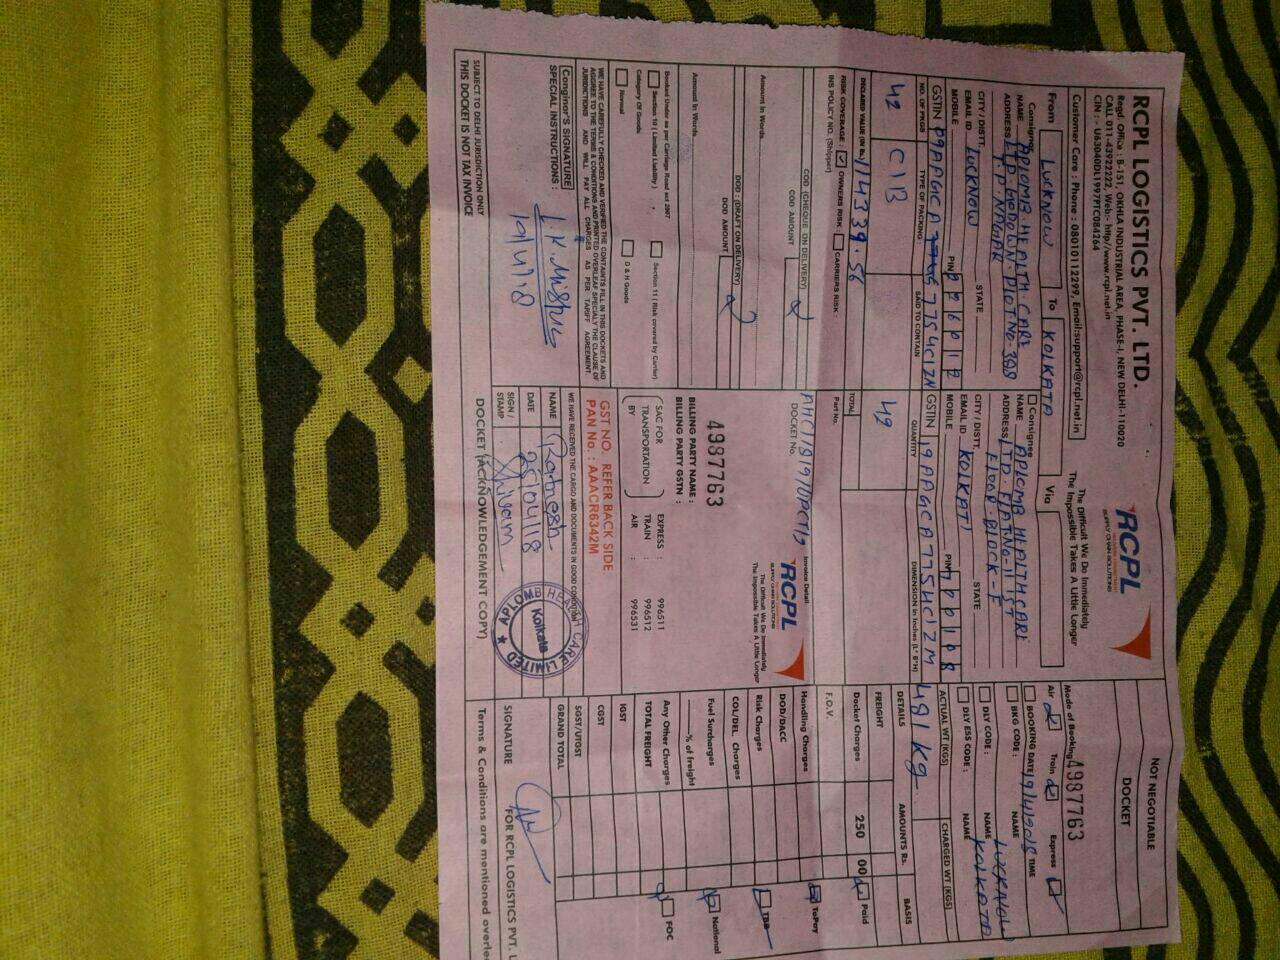 RCPL LOGISTICS PVT. LTD.
Regd. Office : B-151, OKHLA INDUSTRIAL AREA, PHASE-I, NEW DELHI-110020
CALL 011-43922222, Web:- http://www.rcpl.net.in
CIN : - U63040DL1997PTC084264
Customer Care : Phone : 080110112299, Email:support@rcpl.net.in
RCPL
SUPPLY CHAIN SOLUTIONS
The Difficult We Do Immediately
The Impossible Takes A Little Longer
NOT NEGOTIABLE
DOCKET
4987763
From LUCKNOW To KOLKATA Via
Mode of Booking
Air Train Express
Consignor
NAME APLOMB HEALTH CARE
ADDRESS LTD. GODOWN. PLOT NO-
T.P. NAGAR
CITY / DISTT. LUCKNOW STATE
EMAIL ID PIN 226012
MOBILE
Consignee
NAME APLOMB HEALTHCARE
ADDRESS LTD. FLAT No-
FLOOR BLOCK-F
CITY / DISTT. STATE
EMAIL ID PIN
MOBILE
BOOKING DATE 19/4/2018 TIME
BKG CODE : NAME LUCKNOW
DLY CODE : NAME KOLKATA
DLY ESS CODE : NAME
GSTIN 09AAGCA 7754C1ZN
GSTIN 19AAGCA7754C1ZM
ACTUAL WT (KGS) CHARGED WT (KGS)
NO. OF PKGS TYPE OF PACKING SAID TO CONTAIN QUANTITY DIMENSION in Inches (L* B*H)
42 C/B 42 481 kg
DETAILS AMOUNTS Rs. BASIS
FREIGHT
Docket Charges 250 00
F.O.V.
Handling Charges
DOD/DACC
Risk Charges
COL/DEL. Charges
Fuel Surcharges
% of freight
Any Other Charges
TOTAL FREIGHT
IGST
CGST
SGST/UTGST
GRAND TOTAL
Paid
ToPay
TBB
National
FOC
DECLARED VALUE (IN Rs.) 114339.56
TOTAL
RISK COVERAGE : OWNERS RISK CARRIERS RISK :
INS POLICY NO. (Shipper)
Part No.
Invoice Detail
COD (CHEQUE ON DELIVERY)
COD AMOUNT
Amount in Words
DOD : (DRAFT ON DELIVERY)
DOD AMOUNT
Amount in Words
DOCKET No.
RCPL
SUPPLY CHAIN SOLUTIONS
The Difficult We Do Immediately
The Impossible Takes A Little Longer
4987763
BILLING PARTY NAME :
BILLING PARTY GSTN :
SAC FOR TRANSPORTATION BY
EXPRESS : 996511
TRAIN : 996512
AIR : 996531
Booked Under as per Carriage Road act 2007
Section 10 ( Limited Liability ) Section 11 ( Risk covered by Carrier)
Category Of Goods
Normal D & H Goods
GST NO. REFER BACK SIDE
PAN No. : AAACR6342M
WE HAVE CAREFULLY CHECKED AND VERIFIED THE CONTAINTS FILL IN THIS DOCKETS AND
AGGREE TO THE TERMS & CONDITIONS AND PRINTED OVERLEAF SPECIALY THE CLAUSE OF
JURISDICTIONS AND WILL PAY ALL CHARGES AS PER TARIFF AGREEMENT.
Conginor'S SIGNATURE
SPECIAL INSTRUCTIONS :
19/4/18
WE HAVE RECEIVED THE CARGO AND DOCUMENTS IN GOOD CONDITION
NAME Ratnesh
DATE 25/04/18
SIGN / STAMP Shivam
APLOMB HEALTH CARE LIMITED
Kolkata
SIGNATURE
FOR RCPL LOGISTICS PVT. L
SUBJECT TO DELHI JURISDICTION ONLY
THIS DOCKET IS NOT TAX INVOICE
DOCKET (ACKNOWLEDGEMENT COPY)
Terms & Conditions are mentioned overle